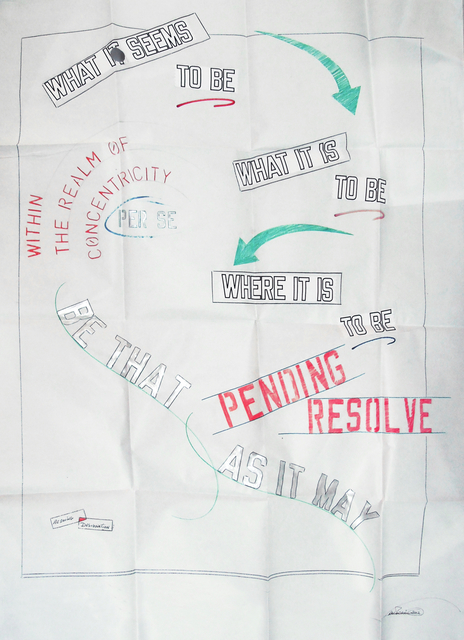 WHAT IT SEEMS
TO BE
WHAT IT IS
TO BE
WITHIN
THE REALM OF
CONCENTRICITY
PER SE
WHERE IT IS
TO BE
BE THAT
PENDING
RESOLVE
AS IT MAY
DESIGNATION